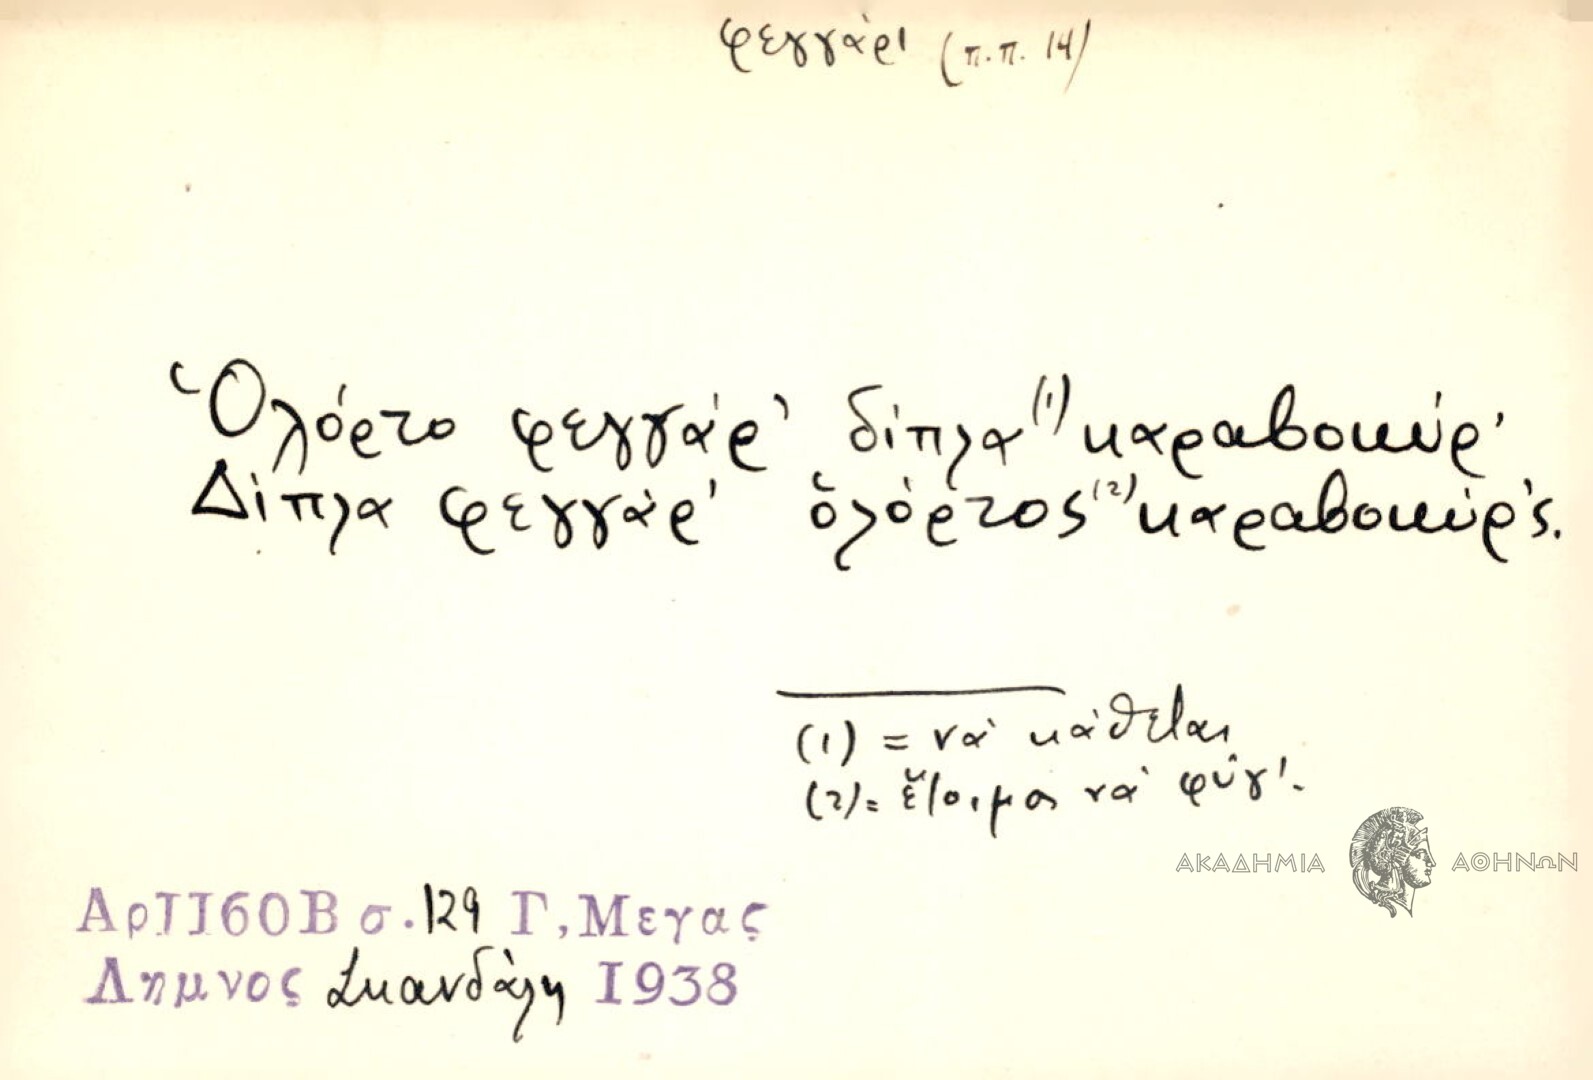 φεγγάρι (π.π. 14)
Ὁλόρτο φεγγάρ' δίπλα (1) καραβοκύρ'
Δίπλα φεγγάρ' ὁλόρτος (2) καραβοκύρ'ς.
(1) = νὰ κάθεται
(2) = ἕτοιμος νὰ φύγ'.
ΑΚΑΔΗΜΙΑ ΑΘΗΝΩΝ
Αρ II60B σ. 129 Γ, Μεγας
Λημνος Σκανδάλη I938